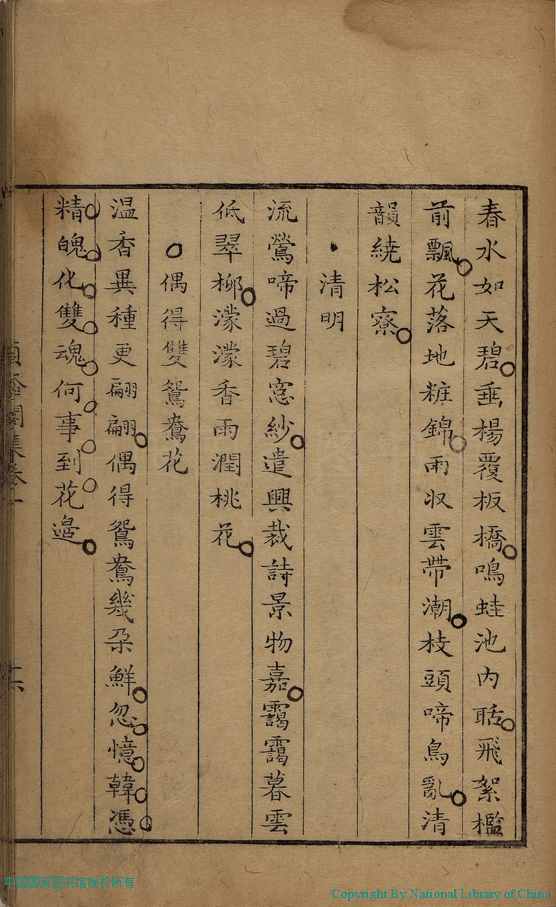 春水如天碧垂楊覆板橋鳴蛙池内聒飛絮檻
前飄花落地粧錦雨収雲帶潮枝頭啼鳥亂清
韻繞松寮
清明
流鶯啼過碧窓紗遣興裁詩景物嘉靄靄暮雲
低翠柳濛濛香雨潤桃花
偶得雙鴛鴦花
温香異種更翩翩偶得鴛鴦幾朵鮮忽憶韓憑
精魄化雙魂何事到花邉
集卷一
Copyright By National Library of China